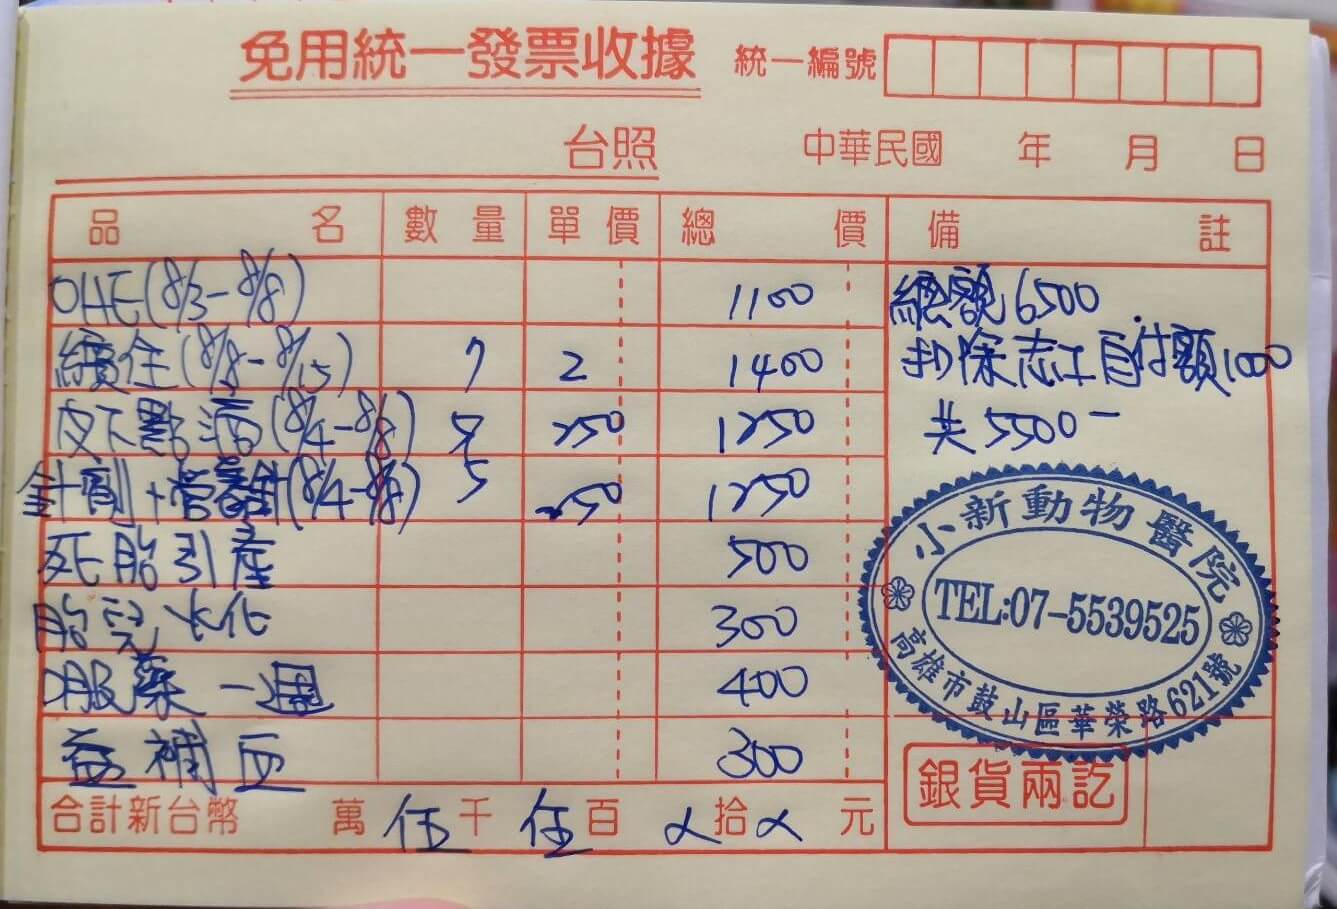 免用統一發票收據 統一編號
台照 中華民國 年 月 日
品名 數量 單價 總價 備註
OHE(8/3-8/8) 1100 總額6500
續住(8/8-8/15) 7 2 1400 扣除志工自付額1000
皮下點滴(8/4-8/8) 5 250 1250 共5500-
針劑+營養針(8/4-8/8) 5 250 1250
死胎引產 500
胎兒火化 300
口服藥一週 400
益補血 300
小新動物醫院
TEL:07-5539525
高雄市鼓山區華榮路621號
銀貨兩訖
合計新台幣 萬伍千伍百 拾 元